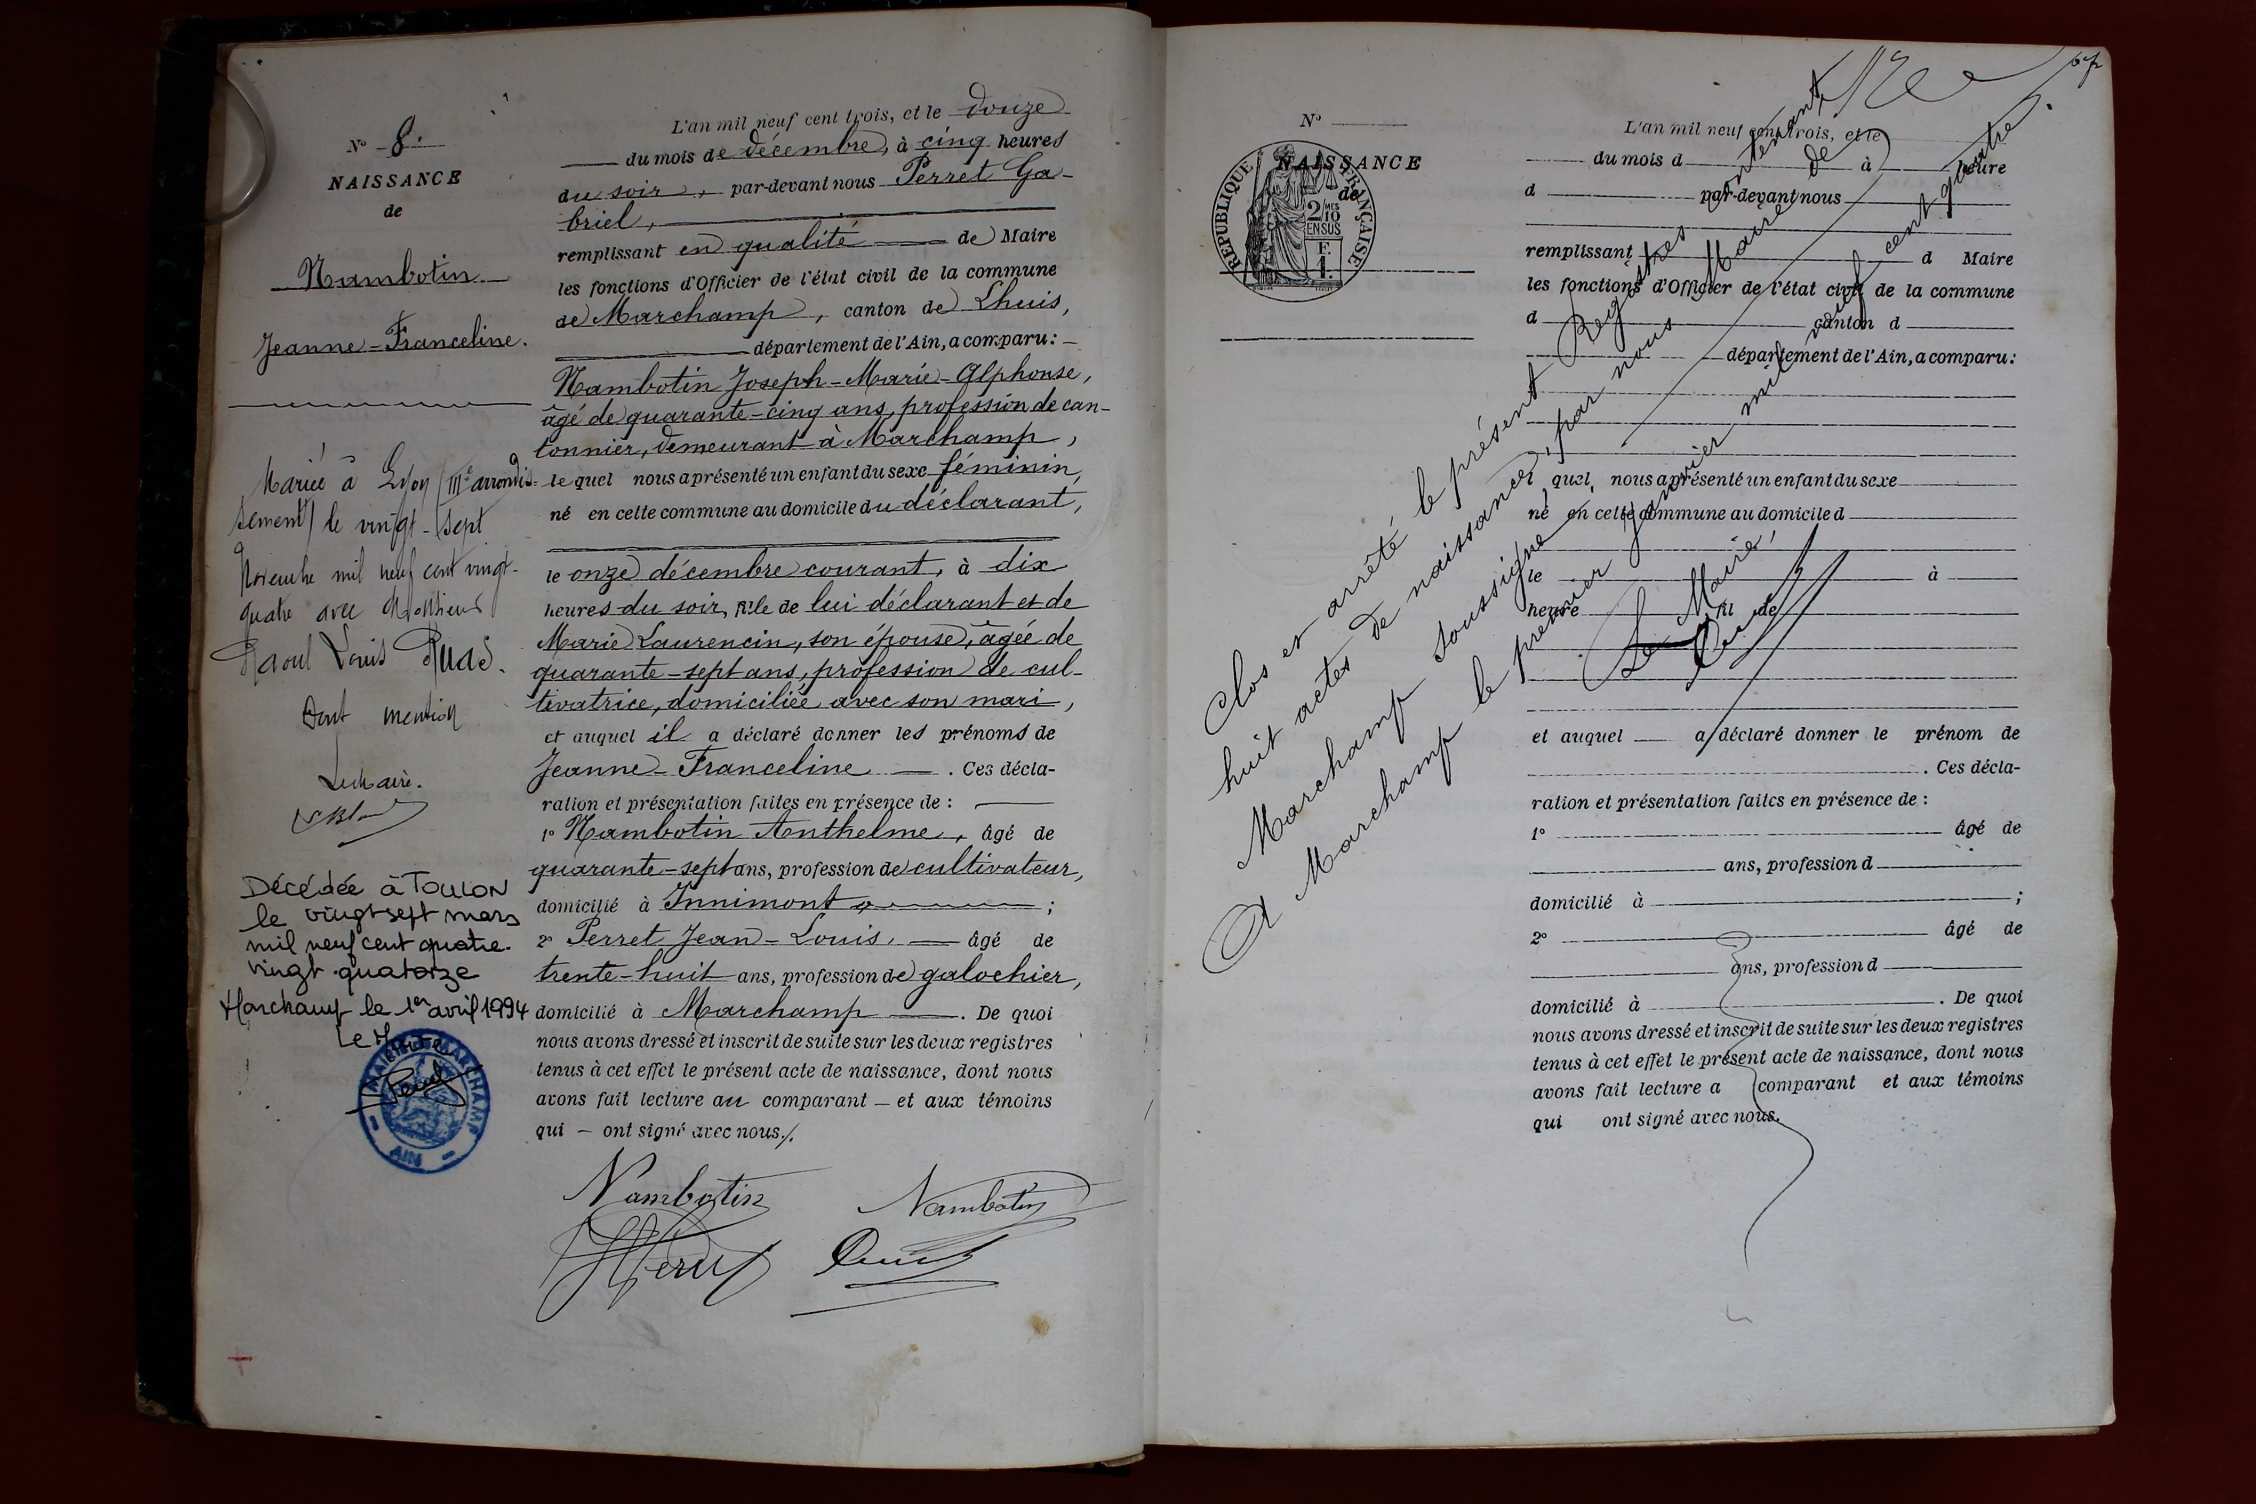 N° 8.
NAISSANCE
de
Nambotin
Jeanne-Franceline.
Mariée à Lyon (IIIe arrondis-
sement) le vingt-sept
Novembre mil neuf cent vingt-
quatre avec Matthieu
Raoul Louis Ruas.
Dont mention
Le Maire.
Décédée à TOULON
le vingt sept mars
mil neuf cent quatre-
vingt quatorze
Marchamp le 1er avril 1994
Le Maire
MAIRIE DE MARCHAMP
- AIN -
L'an mil neuf cent trois, et le douze
du mois de décembre, à cinq heures
du soir, par-devant nous Perret Ga-
briel,
remplissant en qualité de Maire
les fonctions d'Officier de l'état civil de la commune
de Marchamp, canton de Lhuis,
département de l'Ain, a comparu:
Nambotin Joseph-Marie-Alphonse,
âgé de quarante-cinq ans, profession de can-
tonnier, demeurant à Marchamp,
lequel nous a présenté un enfant du sexe féminin,
né en cette commune au domicile du déclarant,
le onze décembre courant, à dix
heures du soir, fille de lui déclarant et de
Marie Laurencin, son épouse, âgée de
quarante-sept ans, profession de cul-
tivatrice, domiciliée avec son mari,
et auquel il a déclaré donner les prénoms de
Jeanne-Franceline. Ces décla-
ration et présentation faites en présence de :
1° Nambotin Anthelme, âgé de
quarante-sept ans, profession de cultivateur,
domicilié à Innimont ;
2° Perret Jean-Louis, âgé de
trente-huit ans, profession de galochier,
domicilié à Marchamp. De quoi
nous avons dressé et inscrit de suite sur les deux registres
tenus à cet effet le présent acte de naissance, dont nous
avons fait lecture au comparant et aux témoins
qui ont signé avec nous./.
Nambotin Nambotin
N°
NAISSANCE
de
RÉPUBLIQUE FRANÇAISE
2 MES
10
EN SUS
F.
1.
L'an mil neuf cent trois, et le
du mois d à heure
d par-devant nous
remplissant d Maire
les fonctions d'Officier de l'état civil de la commune
d canton d
département de l'Ain, a comparu:
l quel nous a présenté un enfant du sexe
né en cette commune au domicile d
le à
heure fil de
et auquel a déclaré donner le prénom de
. Ces décla-
ration et présentation faites en présence de :
1° âgé de
ans, profession d
domicilié à ;
2° âgé de
ans, profession d
domicilié à . De quoi
nous avons dressé et inscrit de suite sur les deux registres
tenus à cet effet le présent acte de naissance, dont nous
avons fait lecture a comparant et aux témoins
qui ont signé avec nous.
Clos et arrêté le présent Registres contenant
huit actes de naissances, par nous Maire de
Marchamp soussigné,
A Marchamp le premier janvier mil neuf cent quatre.
Le Maire,